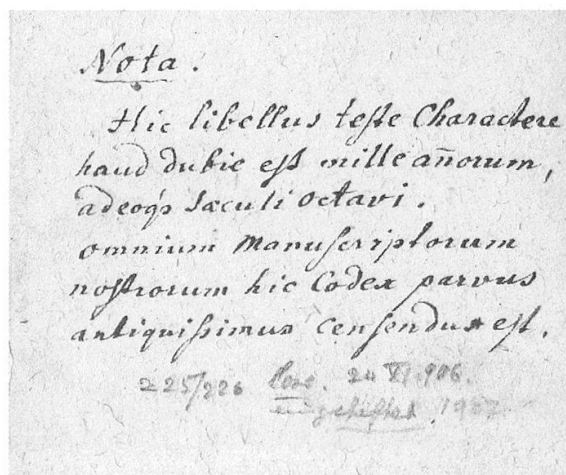 Nota.
Hic libellus teste Charactere
haud dubie est mille añorum,
adeoqs sæculi octavi.
omnium Manuscriptorum
nostrorum hic Codex parvus
antiquissimus censendus est.
225/226 24 XI. 906.
eingeheftet 1907